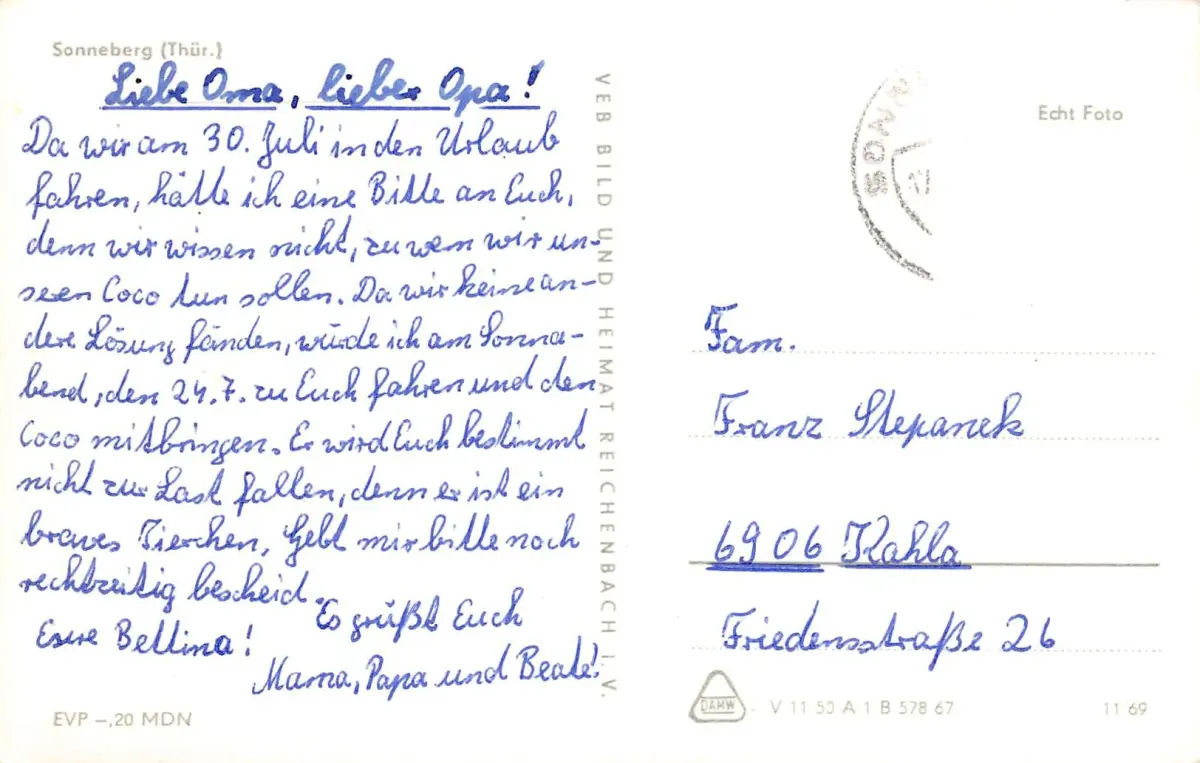 Sonneberg (Thür.)
Liebe Oma, lieber Opa!
Da wir am 30. Juli in den Urlaub
fahren, hätte ich eine Bitte an Euch,
denn wir wissen nicht, zu wem wir un-
seren Coco tun sollen. Da wir keine an-
dere Lösung fänden, würde ich am Sonna-
bend, den 24.7. zu Euch fahren und den
Coco mitbringen. Er wird Euch bestimmt
nicht zur Last fallen, denn er ist ein
braves Tierchen. Gebt mir bitte noch
rechtzeitig bescheid.
Es grüßt Euch
Eure Bettina!
Mama, Papa und Beate!
EVP –,20 MDN
VEB BILD UND HEIMAT REICHENBACH I. V.
Echt Foto
Fam.
Franz Stepanek
6906 Kahla
Friedensstraße 26
DAHW
V 11 50 A 1 B 578 67
11 69